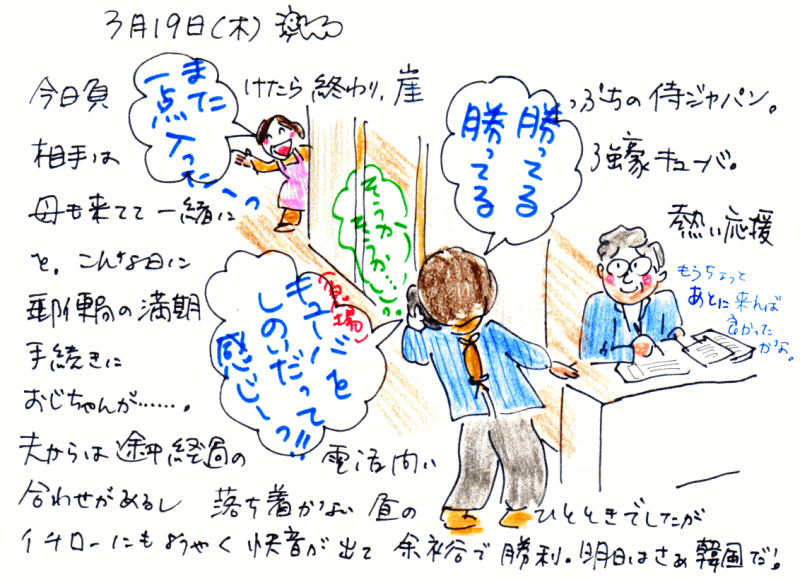 3月19日(木)
今日負けたら終わり、崖っぷちの侍ジャパン。
相手は強豪キューバ。
母も来てて一緒に熱い応援
を。こんな日に
郵便局の満期
手続きに
おじちゃんが……。
夫からは途中経過の電話問い
合わせがあるし 落ち着かない昼のひとときでしたが
イチローにもようやく快音が出て 余裕で勝利。明日はさぁ韓国だ!
また
一点
入ったーっ
勝ってる
勝ってる
そうか
そうか…っ
キューバを
しのいだって
感じーっ!!
もうちょっと
あとに来れば
良かった
かな。